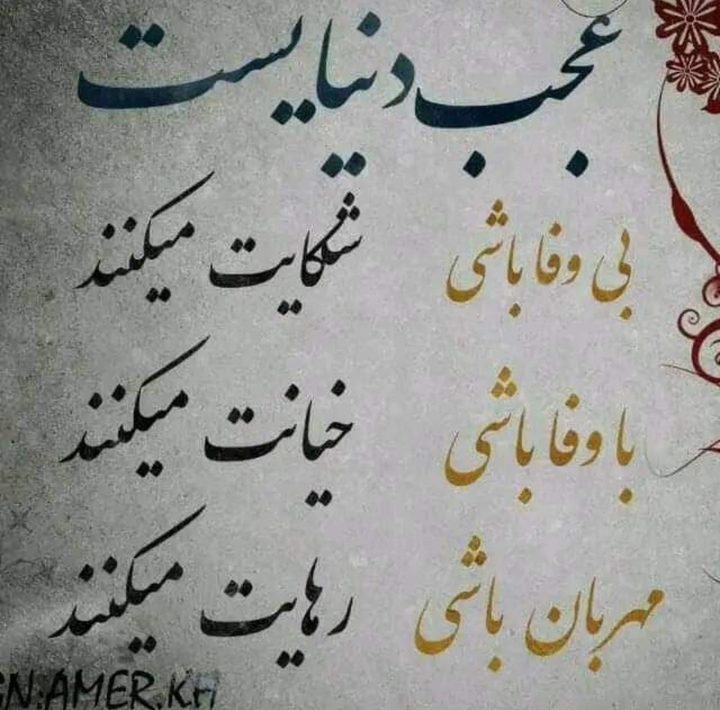 عجب دنیایست
بی وفا باشی شکایت میکنند
با وفا باشی خیانت میکنند
مهربان باشی رهایت میکنند
GN:AMER.KH